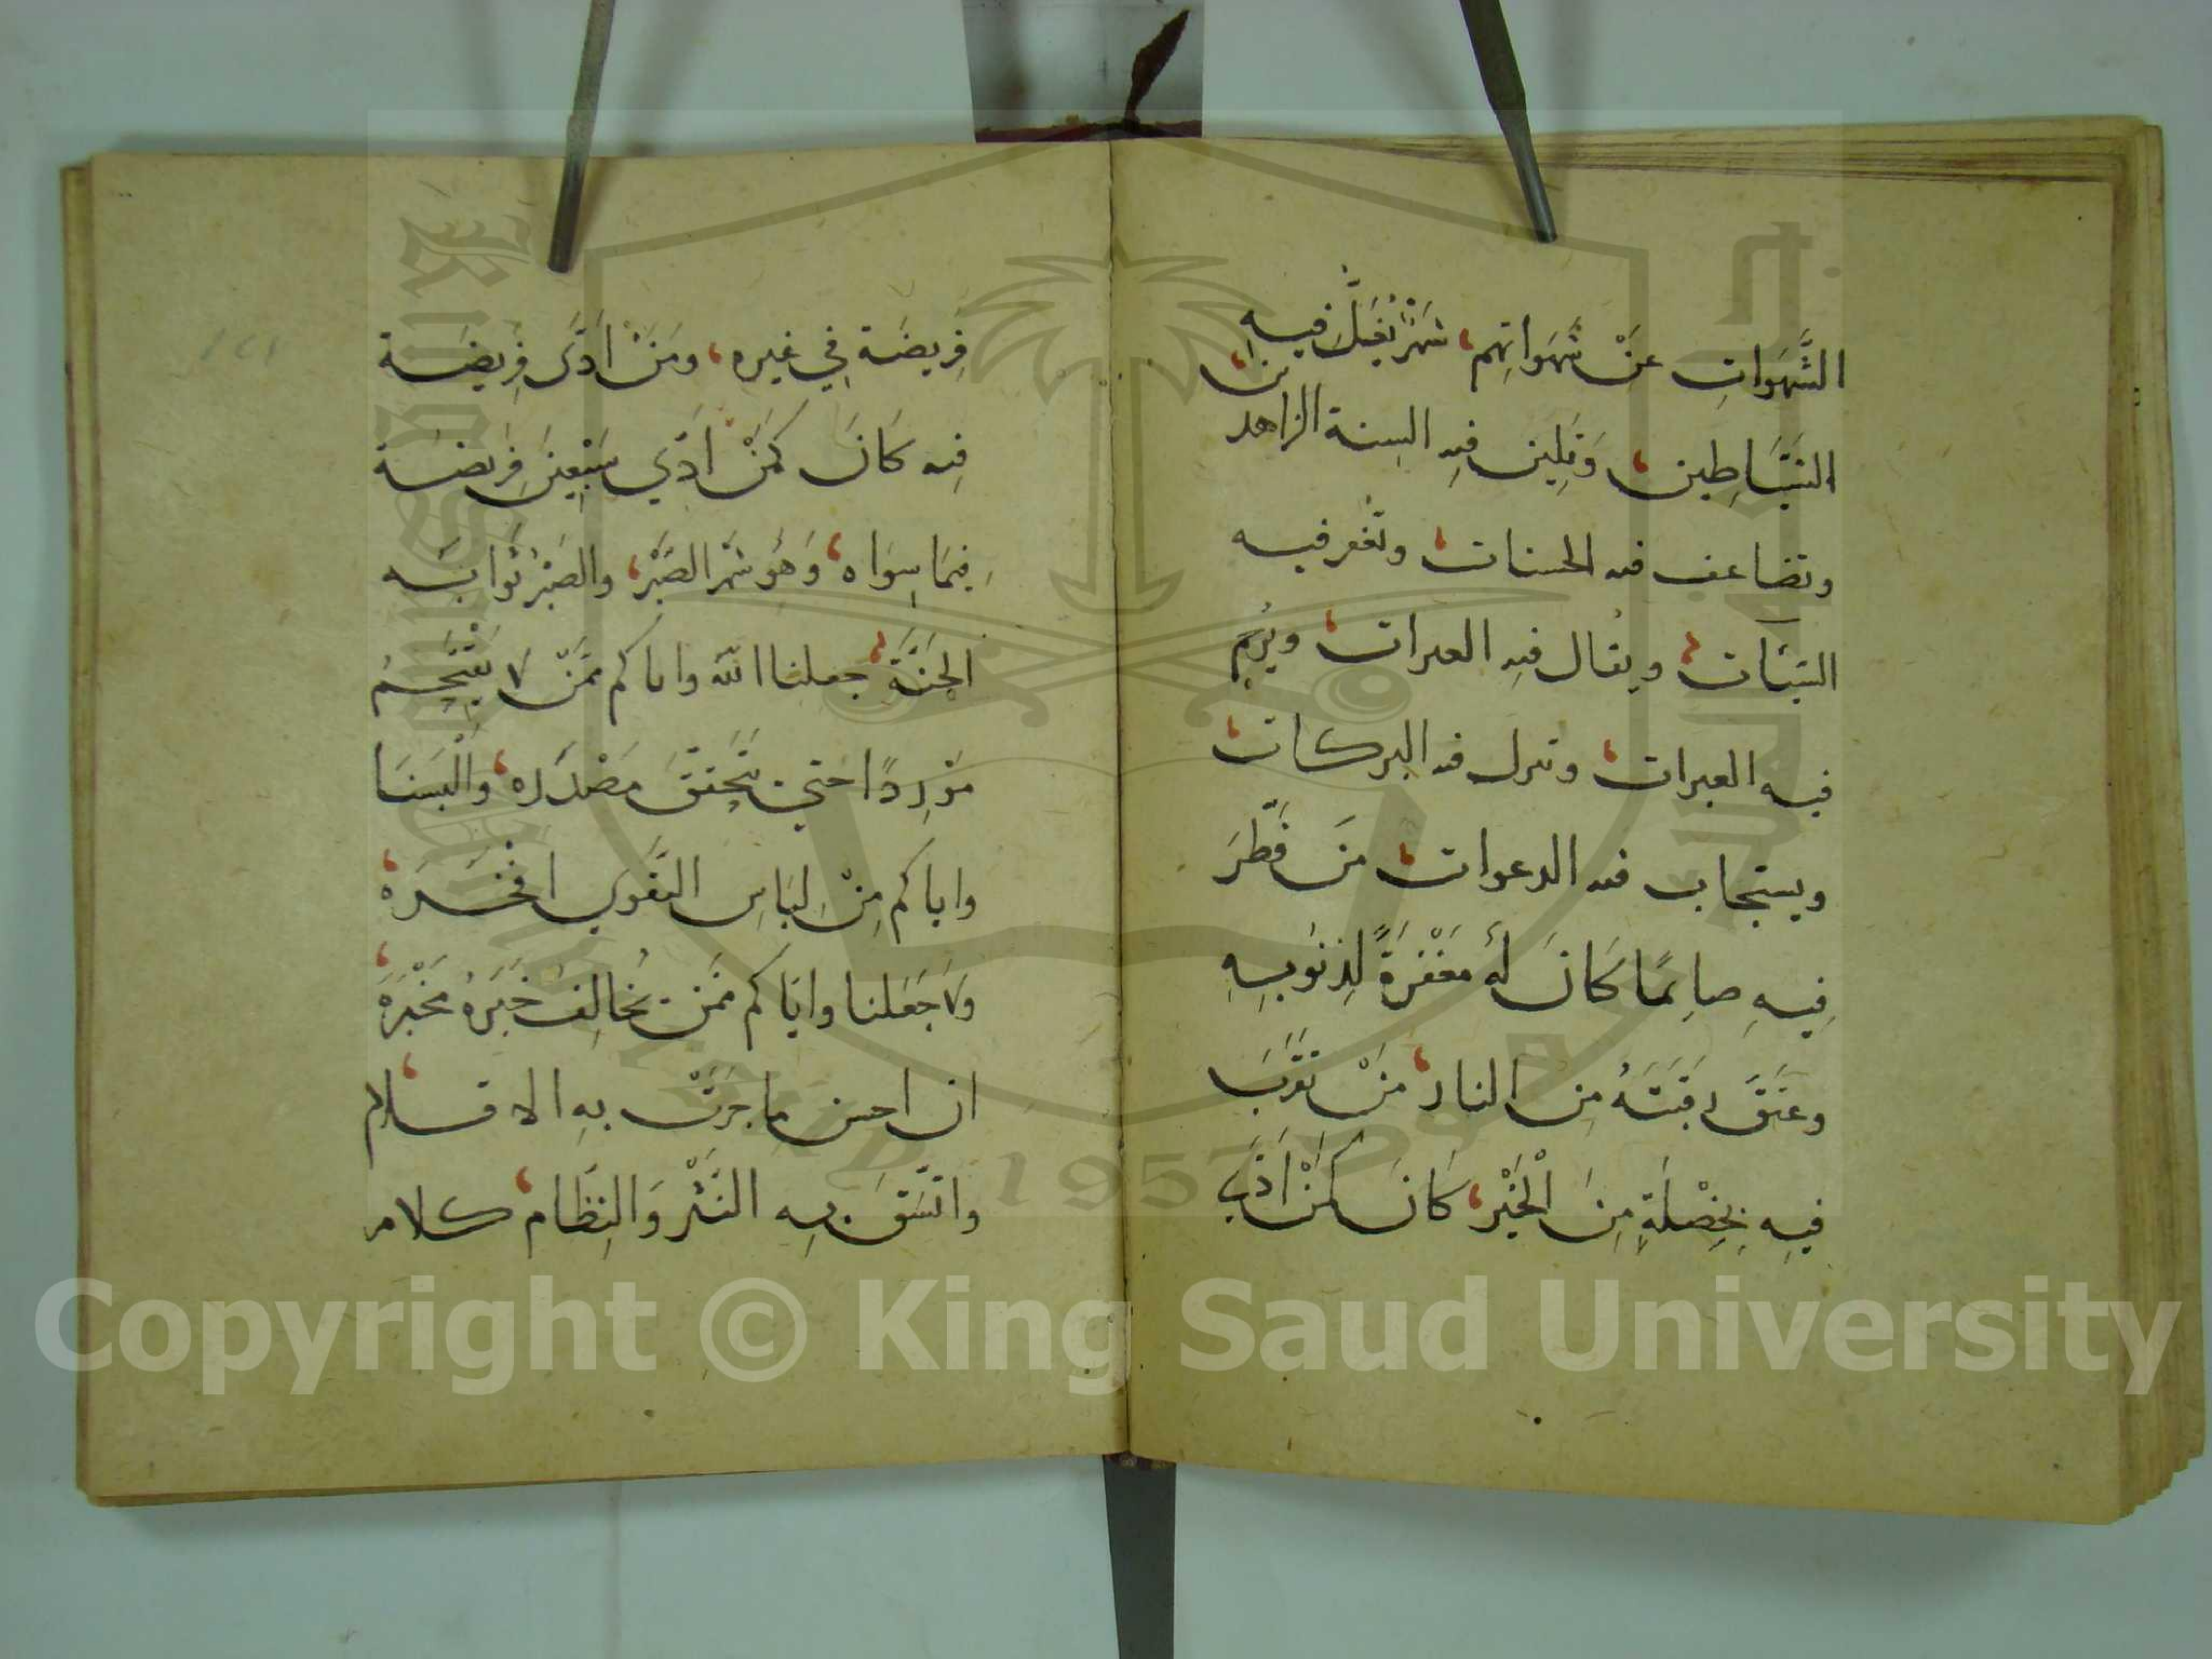 الشَّهَوَاتِ عَنْ شَهَوَاتِهِم، شَهْرٌ تُغَلُّ فيه
الشَّيَاطِين، وَتَلِين فيه السنة الزاهدين،
وتضاعف فيه الحسنات، وتغفر فيه
السّيّئات، ويقال فيه العثرات، ويُرحم
فيه العبرات، وتنزل فيه البركات،
ويستجاب فيه الدعوات، مَن فَطَّرَ
فِيهِ صائِمًا كَانَ لَهُ مَغْفِرَةً لِذنوبِهِ
وعتقَ رقبَتَهُ مِن النار، مَنْ تقَرَّبَ
فيهِ بِخِصْلَةٍ مِنَ الْخَيْرِ، كَانَ كَمَنْ أَدَّى
فَرِيضَة فِي غيره، ومَنْ ادَّى فَرِيضَة
فِيه كَانَ كَمَنْ ادَّي سَبْعِينَ فَرِيضَة
فِيمَا سِوَاه، وَهُوَ شَهْر الصَّبْر، والصَبْرُ ثَوَابُه
الجَنَّة، جعلنا الله واياكم مِمَّنْ لا يَقْتَحِمُ
مَوْرِدًا حتي يتَحَقق مَصْدَرَه، وَالْبَسَنَا
واياكم مِنْ لِبَاسِ التَّقوي افخَرَه،
ولا جَعَلنا واياكم مِمَن يُخَالِفُ خَبَرهُ مَخْبَرَه،
ان احسن ما جَرَتْ بِهِ الاقلام،
واتَّسَقَ بِهِ النَثْر وَالنِظَام، كلام
Copyright © King Saud University
1957